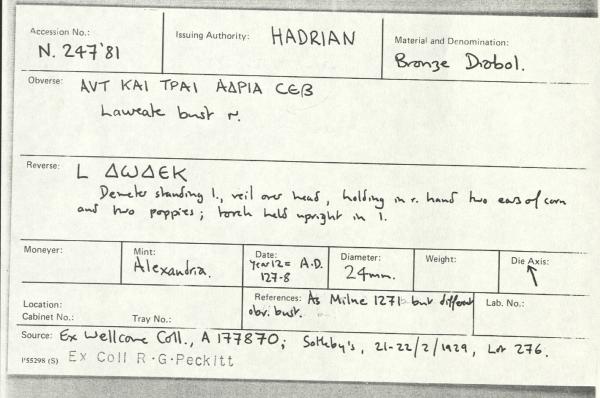 Accession No.: Issuing Authority: HADRIAN Material and Denomination:
N. 247'81 Bronze Diobol.
Obverse: ΑVΤ ΚΑΙ ΤΡΑΙ ΑΔΡΙΑ CЄΒ
Laureate bust r.
Reverse: L ΔωΔЄΚ
Demeter standing l., veil over head, holding in r. hand two ears of corn
and two poppies; torch held upright in l.
Moneyer: Mint: Date: Diameter: Weight: Die Axis:
Alexandria. Year 12 = A.D. 24mm. ↖
127-8
Location: References: As Milne 1271 but different Lab. No.:
Cabinet No.: Tray No.: obv. bust.
Source: Ex Wellcome Coll., A 177870; Sotheby's, 21-22/2/1929, Lot 276.
I'55298 (S) Ex Coll R.G.Peckitt